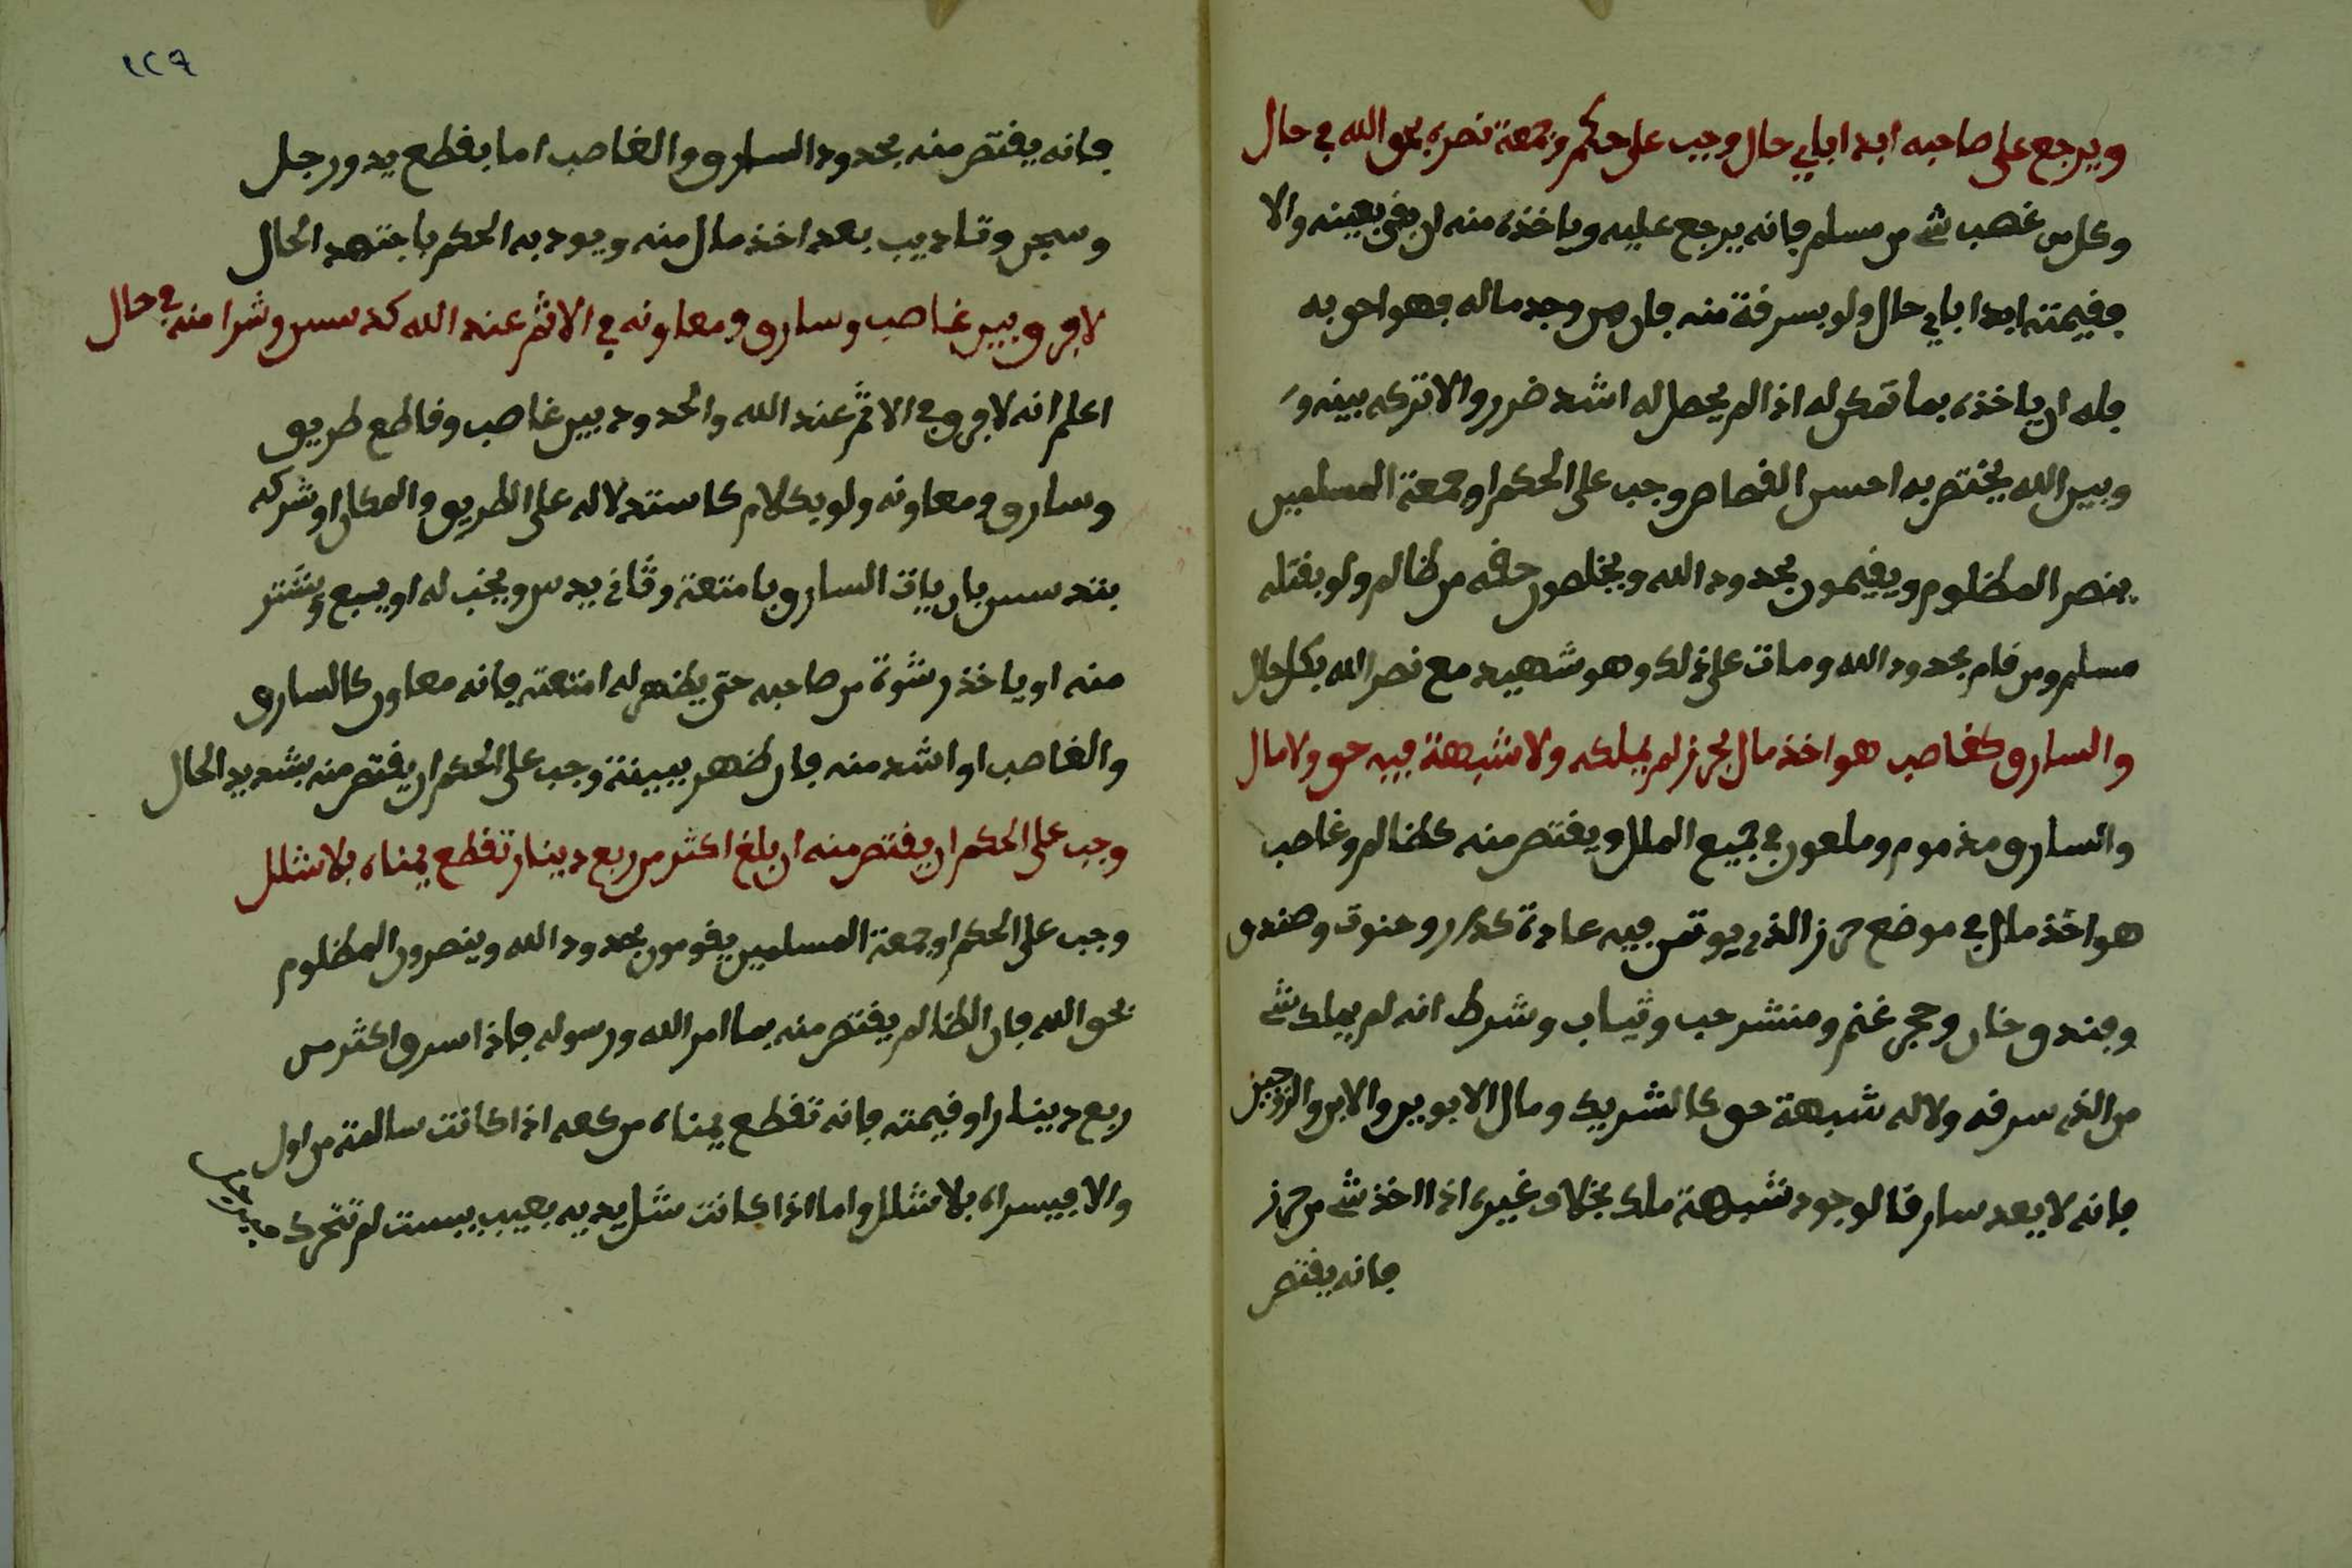 ويرجع على صاحبه ابدا باي حال وجب على حكم وجمعة نصره بحق الله في حال
وكل من غصب شي من مسلم فانه يرجع عليه وياخذه منه ان بقى بعينه والا
فقيمته ابدا باي حال ولو بسرقة منه فان من وجد ماله فهو احق به
فله ان ياخذه بما تمكن له اذا لم يحصل له اشد ضرر والا تركه بينه و
وبين الله يختص به احسن القصاص وجب على الحكم او جمعة المسلمين
ينصر المظلوم ويقيمون بحدود الله ويخلصون حقه من ظالم ولو بقتله
مسلم ومن قام بحدود الله ومات على ذلك وهو شهيد مع نصر الله بكل حال
والسارق كغاصب هو اخذ مال بحرز لم يملكه ولا شبهة فيه حق ولا مال
والسارق مذموم وملعون في جميع الملل ويقتص منه كظالم وغاصب
هو اخذ مال في موضع حرز الذي يوتمن فيه عادة كدار وحنوت وصندق
وفندق خان وحجر غنم ومنشر حب وثياب وشرط انه لم يملك شي
من الذي سرقه ولا له شبهة حق كالشريك ومال الابوين والابن والزوجين
فانه لا يعد سارقا لوجود شبهة ملك بخلاف غيره اذا اخذ شي من حرز
فانه يقتص
١٢٩
فانه يقتص منه بحدود السارق والغاصب اما بقطع يد ورجل
وسجن وتاديب بعد اخذ مال منه ويودبه الحكم باجتهد الحال
لا فرق بين غاصب وسارق ومعاونه في الاثم عند الله كدسس وشرا منه في حال
اعلم انه لا فرق في الاثم عند الله والحدود بين غاصب وقاطع طريق
وسارق ومعاونه ولو بكلام كاستدلاله على الطريق والمكان او شركه
بتدسس بان يات السارق بامتعة وثاني يدس ويخب له او يبيع ويشتر
منه او ياخذ رشوة من صاحبه حتى يظهر له امتعته فانه معاون كالسارق
والغاصب او اشد منه فان ظهر ببينة وجب على الحكم ان يقتص منه بشديد الحال
وجب على الحكم ان يقتص منه ان بلغ اكثر من ربع دينار تقطع يمناه بلا شلل
وجب على الحكم او جمعة المسلمين يقومون بحدود الله وينصرون المظلوم
بحق الله فان الظالم يقتص منه بما امر الله ورسوله فاذا سرق اكثر من
ربع دينار او قيمته فانه تقطع يمناه من كعه اذا كانت سالمة من اول
والا فيسراه بلا شلل واما اذا كانت شل يديه بعيب يبست لم تتحرك